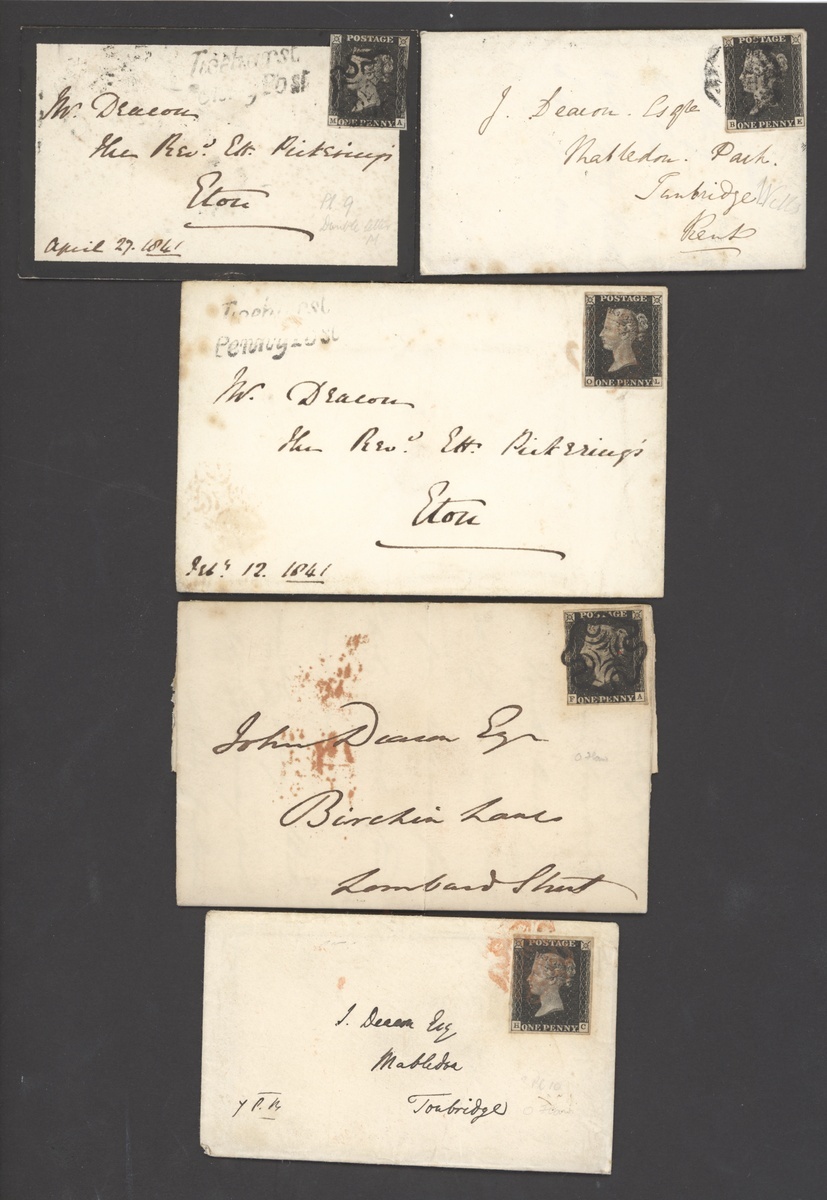 Ticehurst
Penny Post
POSTAGE
M A
ONE PENNY
Mr. Deacon
The Revd. E.H. Pickering's
Eton
April 27. 1841
Pl. 9
Double letter
POSTAGE
B E
ONE PENNY
J. Deacon. Esqre
Mabledon. Park.
Tunbridge Wells
Kent
Penny Post
POSTAGE
O L
ONE PENNY
Mr. Deacon
The Revd. E.H. Pickering's
Eton
Feby. 12. 1841
POSTAGE
F A
ONE PENNY
John Deacon Esqr
Birchin Lane
Lombard Street
POSTAGE
C
ONE PENNY
J. Deacon Esq
Mabledon
Tonbridge
7 P.M.